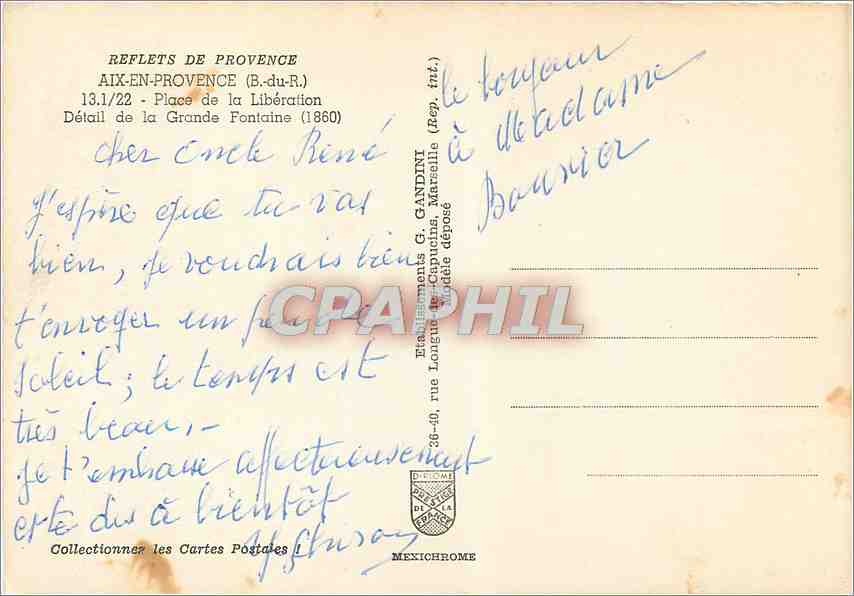 REFLETS DE PROVENCE
AIX-EN-PROVENCE (B.-du-R.)
13.1/22 - Place de la Libération
Détail de la Grande Fontaine (1860)
cher oncle René
J'espère que tu vas
bien, je voudrais bien
t'envoyer un peu de
soleil ; le temps est
très beau, -
Je t'embrasse affectueusement
et te dis à bientôt
Collectionnez les Cartes Postales !
Etablissements G. GANDINI
36-40, rue Longue-des-Capucins, Marseille (Rep. int.)
Modèle déposé
le bonjour
à Madame
DIPLOME
PRESTIGE
DE LA
FRANCE
MEXICHROME
CPAPHIL